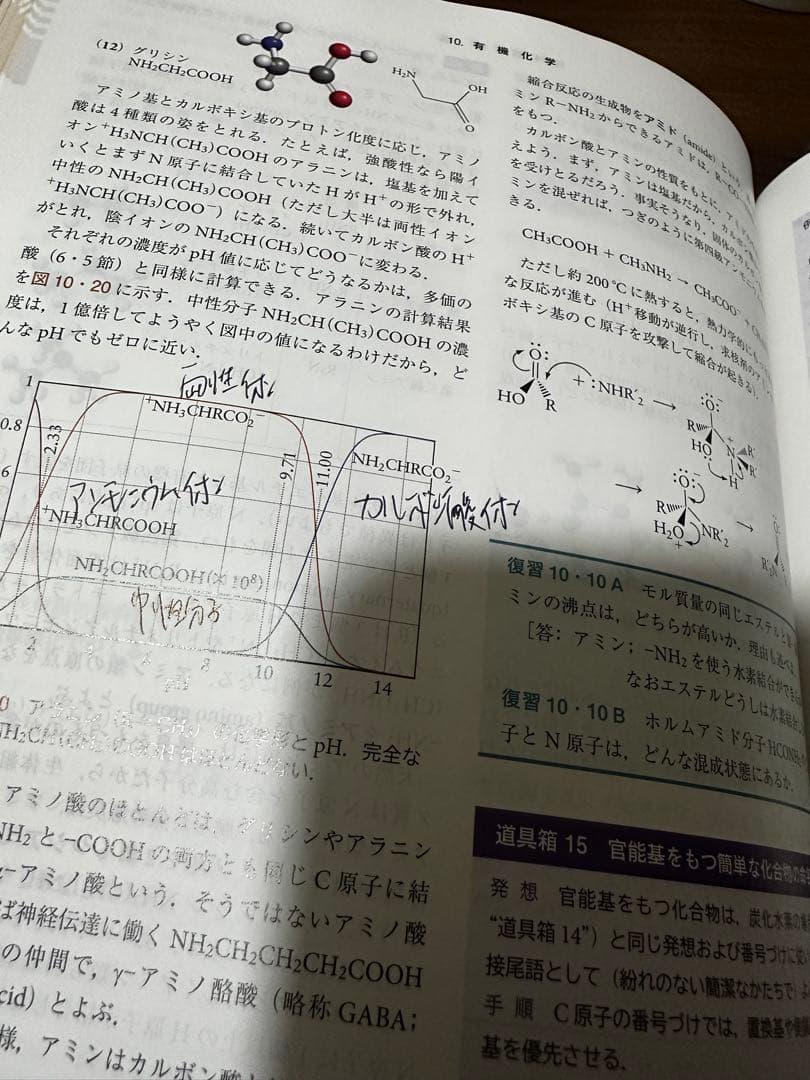 10. 有機化学
(12) グリシン
NH₂CH₂COOH
H₂N
OH
O
アミノ基とカルボキシ基のプロトン化度に応じ，アミノ
酸は4種類の姿をとれる．たとえば，強酸性なら陽イ
オン⁺H₃NCH(CH₃)COOHのアラニンは，塩基を加えて
いくとまずN原子に結合していたHがH⁺の形で外れ，
中性のNH₂CH(CH₃)COOH（ただし大半は両性イオン
⁺H₃NCH(CH₃)COO⁻）になる．続いてカルボン酸のH⁺
がとれ，陰イオンのNH₂CH(CH₃)COO⁻に変わる．
それぞれの濃度がpH値に応じてどうなるかは，多価の
酸（6・5節）と同様に計算できる．アラニンの計算結果
を図10・20に示す．中性分子NH₂CH(CH₃)COOHの濃
度は，1億倍してようやく図中の値になるわけだから，ど
んなpHでもゼロに近い．
両性イオン
1
⁺NH₃CHRCO₂⁻
0.8
2.33
9.71
11.00
NH₂CHRCO₂⁻
6
アンモニウムイオン
カルボン酸イオン
⁺NH₃CHRCOOH
NH₂CHRCOOH(×10⁸)
中性分子
2
8
10
12
14
とpH．完全な
アミノ酸のほとんどは，グリシンやアラニン
NH₂と−COOHの両方とも同じC原子に結
アミノ酸という．そうではないアミノ酸
ば神経伝達に働くNH₂CH₂CH₂CH₂COOH
の仲間で，γ-アミノ酪酸（略称GABA；
cid）とよぶ．
様，アミンはカルボン酸
縮合反応の生成物をアミド（amide）とい
ミンR−NH₂からできるアミドは，R−CO
をもつ．
カルボン酸とアミンの性質をもとに，
えよう．まず，アミンは塩基だから，カルボ
を受けとるだろう．事実そうなり，固体のカルボ
ミンを混ぜれば，つぎのように第四級アンモニ
きる．
CH₃COOH + CH₃NH₂ → CH₃COO⁻ +
ただし約200℃に熱すると，熱力学的に
な反応が進む（H⁺移動が逆行し，求核剤のア
ボキシ基のC原子を攻撃して縮合が起きる）．
:O:
HO R
+ :NHR′₂ →
:O:
R
HO
N
R′
H
→
:O:
R
H₂O
+
NR′₂
→
復習10・10A モル質量の同じエステルと
ミンの沸点は，どちらが高いか．理由も述べ
［答：アミン；−NH₂を使う水素結合ができる
なおエステルどうしは水素結合
復習10・10B ホルムアミド分子HCONH₂
子とN原子は，どんな混成状態にあるか．
道具箱15 官能基をもつ簡単な化合物の
発想 官能基をもつ化合物は，炭化水素の
“道具箱14”）と同じ発想および番号づけに従い
接尾語として（紛れのない簡潔なかたちで）
手順 C原子の番号づけでは，置換基や
基を優先させる．